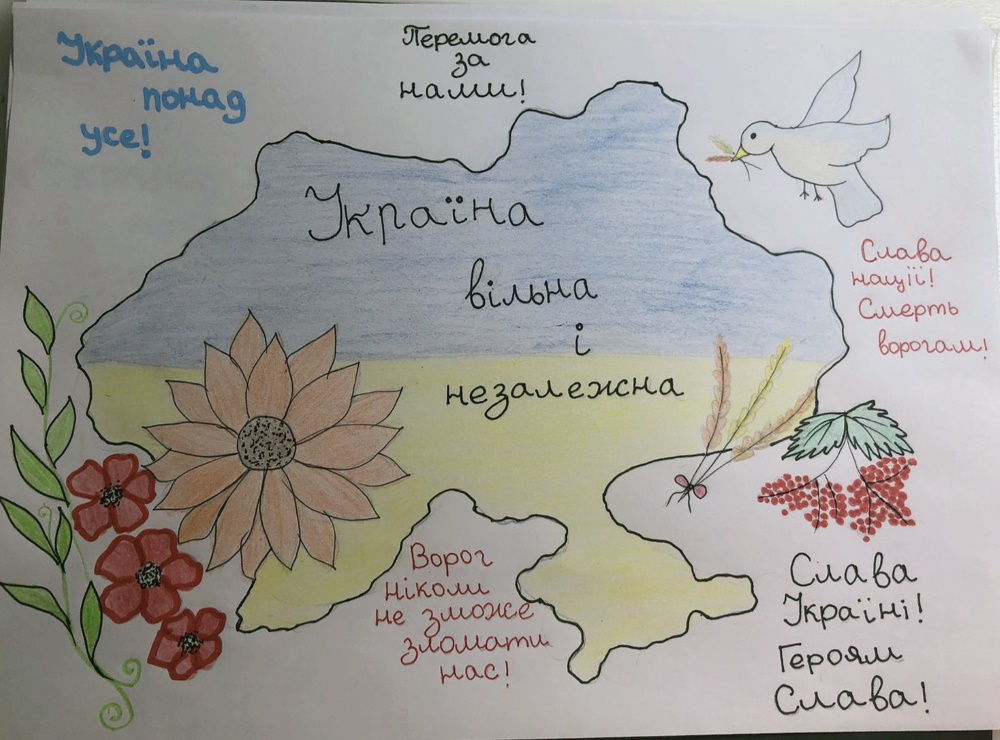 Україна
понад
усе!
Перемога
за
нами!
Україна
вільна
і
незалежна
Слава
нації!
Смерть
ворогам!
Ворог
ніколи
не зможе
зломати
нас!
Слава
Україні!
Героям
Слава!